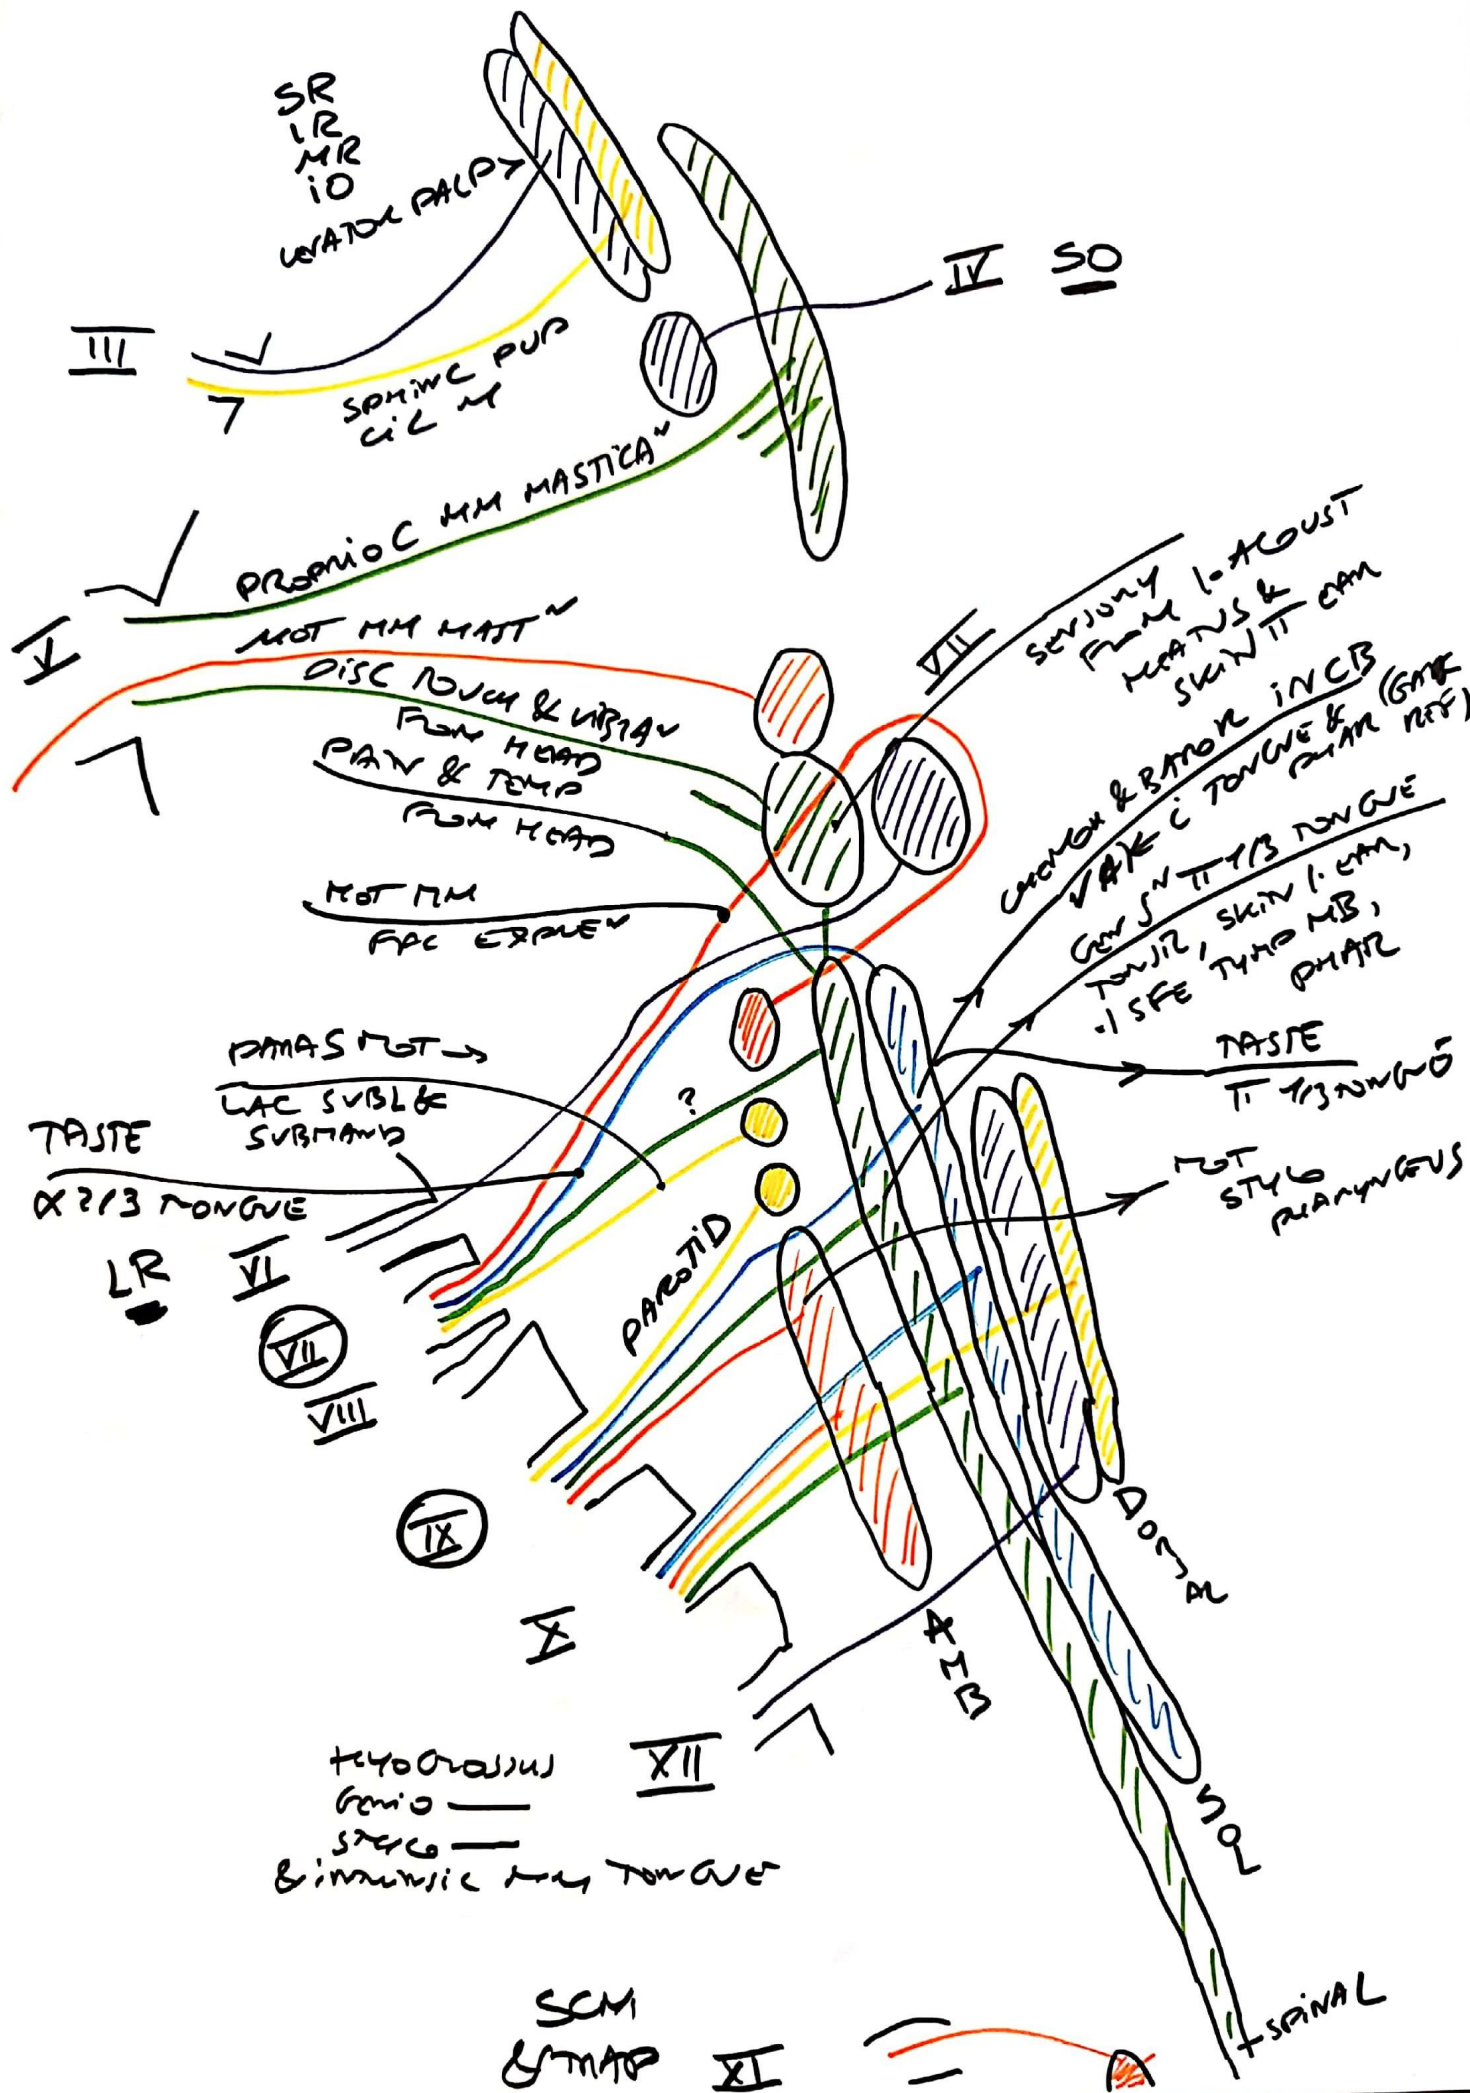 SR
IR
MR
iO
LEVATOR PALP
III
SPHINC PUP
CIL M
IV SO
V
PROPRIOC MM MASTICA~
MOT MM MAST~
DISC TOUCH & VIBRA~
FROM HEAD
PAIN & TEMP
FROM HEAD
MOT MM
FAC EXPRE~
VII
SENSORY
FROM 1. ACOUST
MEATUS &
SKIN π EAR
CHEMOR & BAROR IN CB
TONGUE &
PHAR (GAG
REF)
GEN S~ π 1/3 TONGUE
TONSIL, SKIN 1. EAR,
.1 SFE TYMP MB,
PHAR
TASTE
π 1/3 TONGUE
MOT
STYLO
PHARYNGEUS
PARAS MOT →
LAC SUBL &
SUBMAND
?
TASTE
α 2/3 TONGUE
LR VI
VII
VIII
PAROTID
IX
X
DORSAL
AMB
SOL
HYOGLOSSUS
GENIO —
STYLO —
& intrinsic mm TONGUE
XII
SCM
& TRAP XI
SPINAL